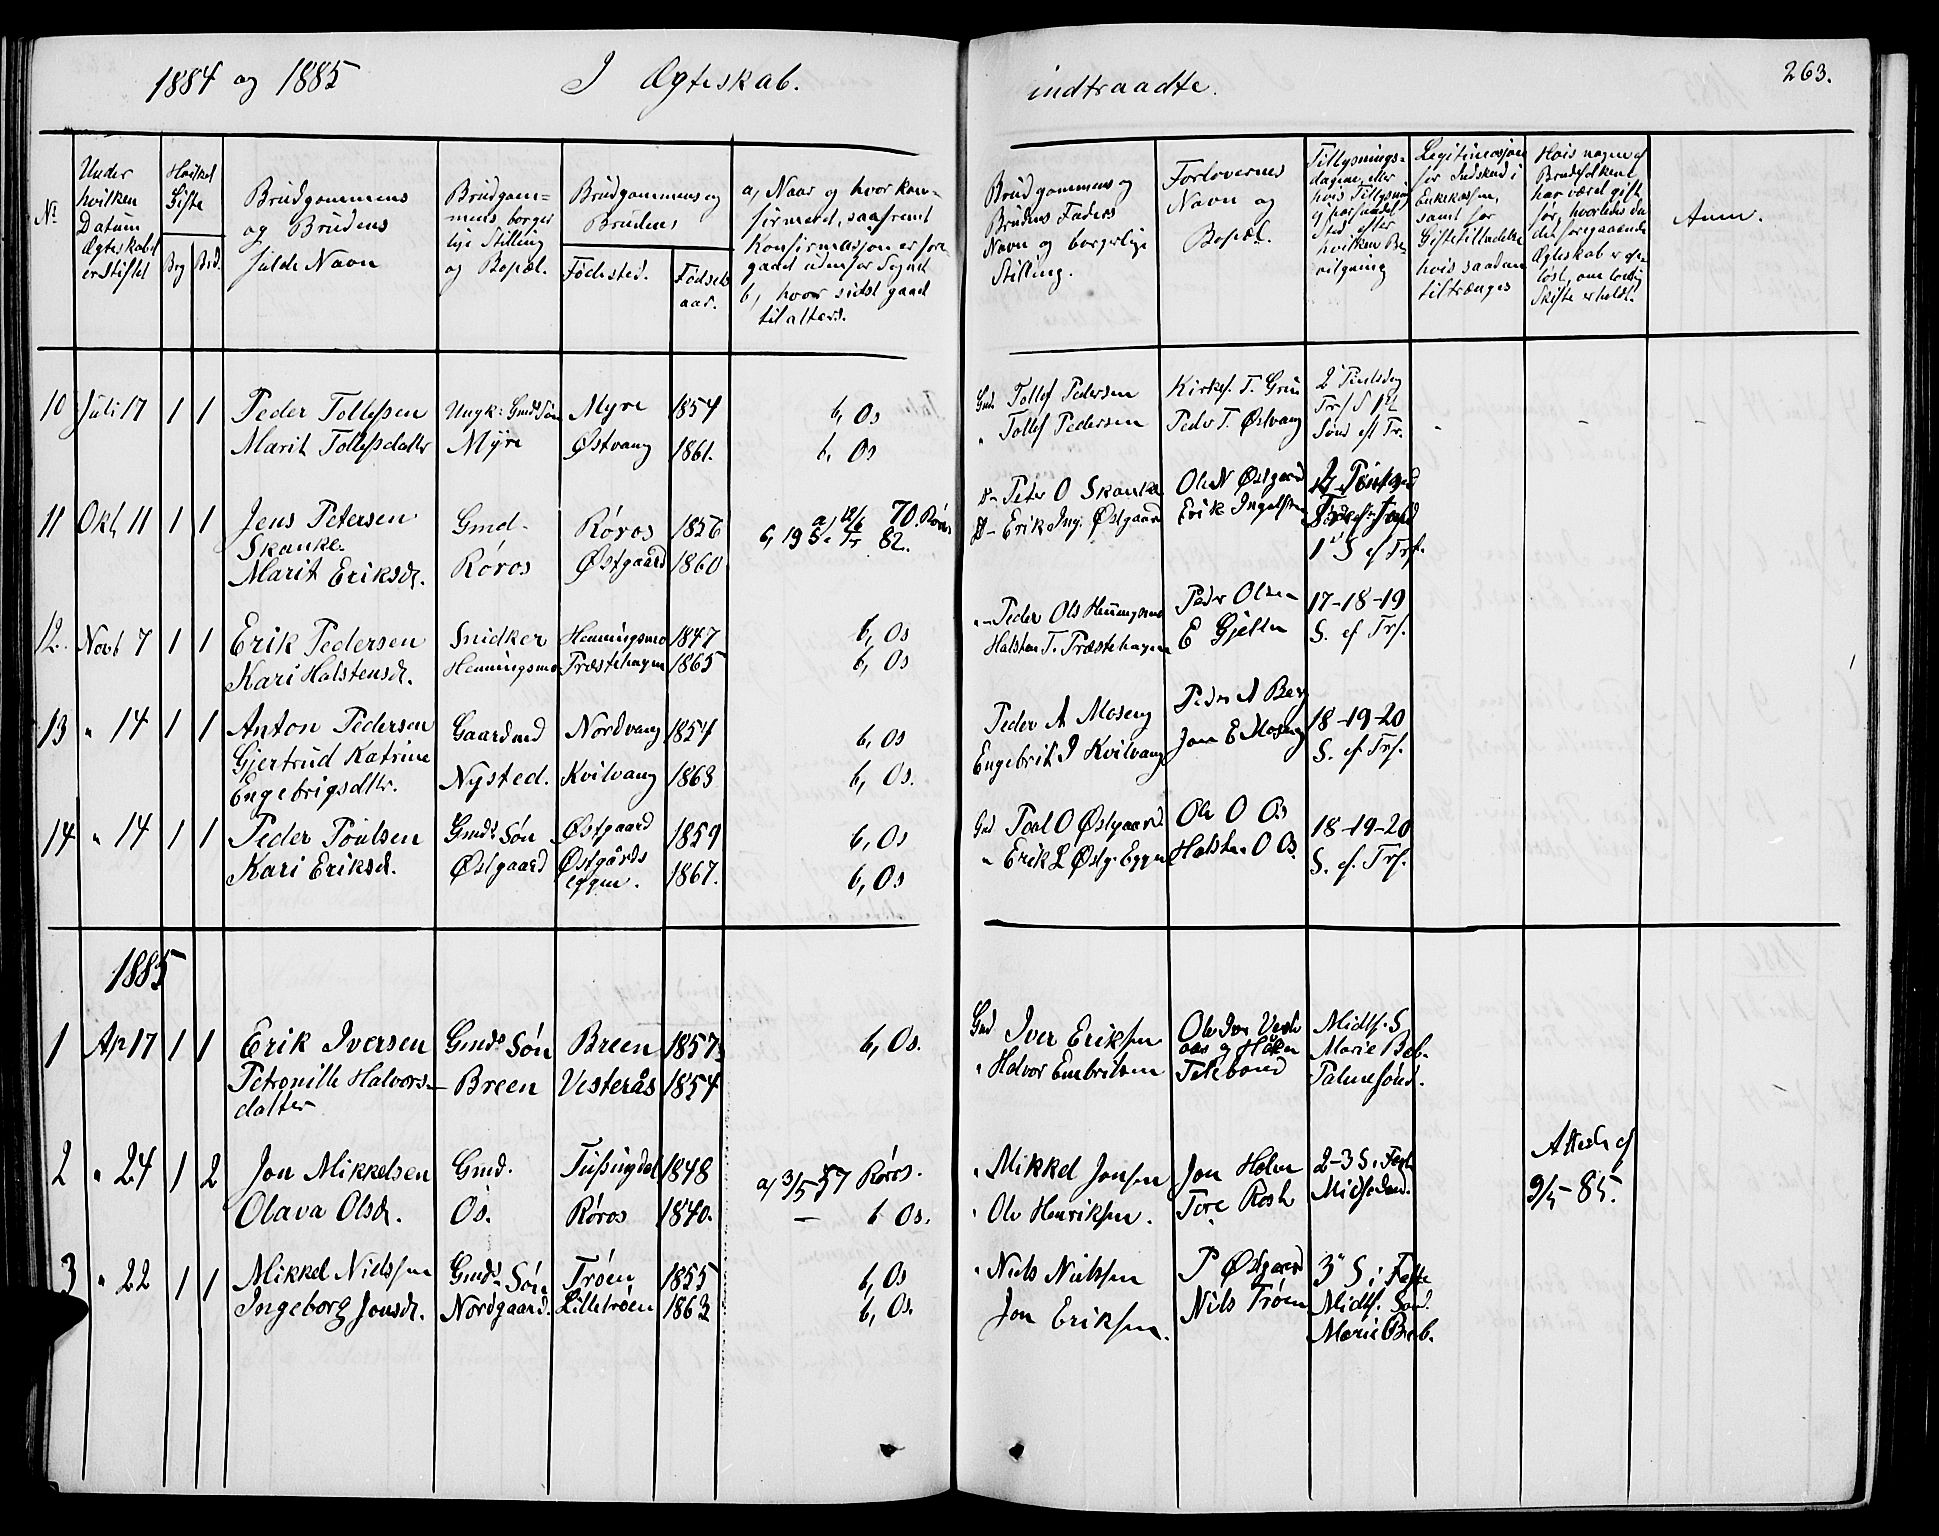 1884 og 1885 I Ægteskab.
indtraadte. 263.
No
Under hvilken Datum Ægteskabet er stiftet
Hvilket Gifte
Brg Brd.
Brudgommens og Brudens fulde Navn
Brudgommens borgerlige Stilling og Bopæl.
Brudgommens og Brudens
Fødested. Fødselsaar.
a, Naar og hvor konfirmeret, saafremt Konfirmasjon er foregaaet udenfor Sognet
b, hvor sidst gaaet til alters.
Brudgommens og Brudens Faders Navn og borgerlige Stilling.
Forlovernes Navn og Bopæl.
Tillysningsdagene, eller hvis Tillysning ej har fundet Sted efter hvilken Bevilgning
Legitimasjon for Indskud i Enkekassen, samt for Giftetilladelse hvis saadan tiltrænges
Hvis nogen af Brudefolkene har været gift før, hvorledes da det foregaaende Ægteskab er opløst, om lovlig Skifte er holdt.
Anm.
10 Juli 17 1 1 Peder Tollefsen Ungk: Gmds Søn Myre 1854 b, Os Gmd. Tollef Pedersen Kirkes. T. Grue 2 Pintsdag
Marit Tollefsdattr Myre Østvang 1861. b, Os " Tollef Pedersen Peder T. Østvang Sønd ef Tr. - - -
11 Okt 11 1 1 Jens Petersen Gmd. Røros 1856 a, 12/6 70. Røros D- Peter O Skanke Ole N Østgaard
Skanke. b, 19 S. e Tr 82. D- Erik Ing. Østgaard Erik Ingebr.
Marit Eriksd. Røros Østgaard 1860 1 S ef Trf.
12. Novb 7 1 1 Erik Pedersen Snidker Henningsmo 1847 b, Os "- Peder Ols Henningsmo Peder Olsen 17-18-19
Kari Halstensd. Henningsmo Præstehagen 1865 b, Os Halsten T. Præstehagen E Gjelten S. ef Trf.
13 " 14 1 1 Anton Pedersen Gaardmd Nordvang 1854 b, Os Peder A Moseng Peder A Berg 18-19-20
Gjertrud Katrine Engebrigsdttr. Nysted. Kvilvang 1863 b, Os. Engebrit J Kvilvang Jon E Moseng S. ef Trf.
14 " 14 1 1 Peder Poulsen Gmds Søn Østgaard 1859 b, Os Gmd Poul O Østgaard Ole O Os 18-19-20
Kari Eriksd. Østgaard Østgårdseggen. 1867. b, Os " Erik L Østg. Eggen Halsten O Os. S. ef. Trf.
1885
1 Ap 17 1 1 Erik Iversen Gmds Søn Breen 1857 b, Os. Gmd Iver Eriksen Ole Iver Vesteraas og Midtf. S
Petronille Halvorsdatter Breen Vesterås 1854 " Halvor Embretsen Marie Beb. Palmesønd.
2 " 24 1 2 Jon Mikkelsen Gmd. Tufsingdal 1848 a, 3/5 57 Røros. " Mikkel Jonsen Jon Holm 2-3 S. i Fast Attest af
Olava Olsd. Os. Røros 1840. — b Os. " Ole Henriksen. Tore Rosh Midfastsd. 9/5-85.
3 " 22 1 1 Mikkel Nielssen Gmds Søn Trøen 1855 b, Os " Niels Nielsen P Østgaard 3 S i Faste
Ingeborg Jonsd. Nordgaard. Lilletrøen 1863 b, Os. Jon Eriksen. Nils Trøen Midtf. Sønd. Marie Beb.